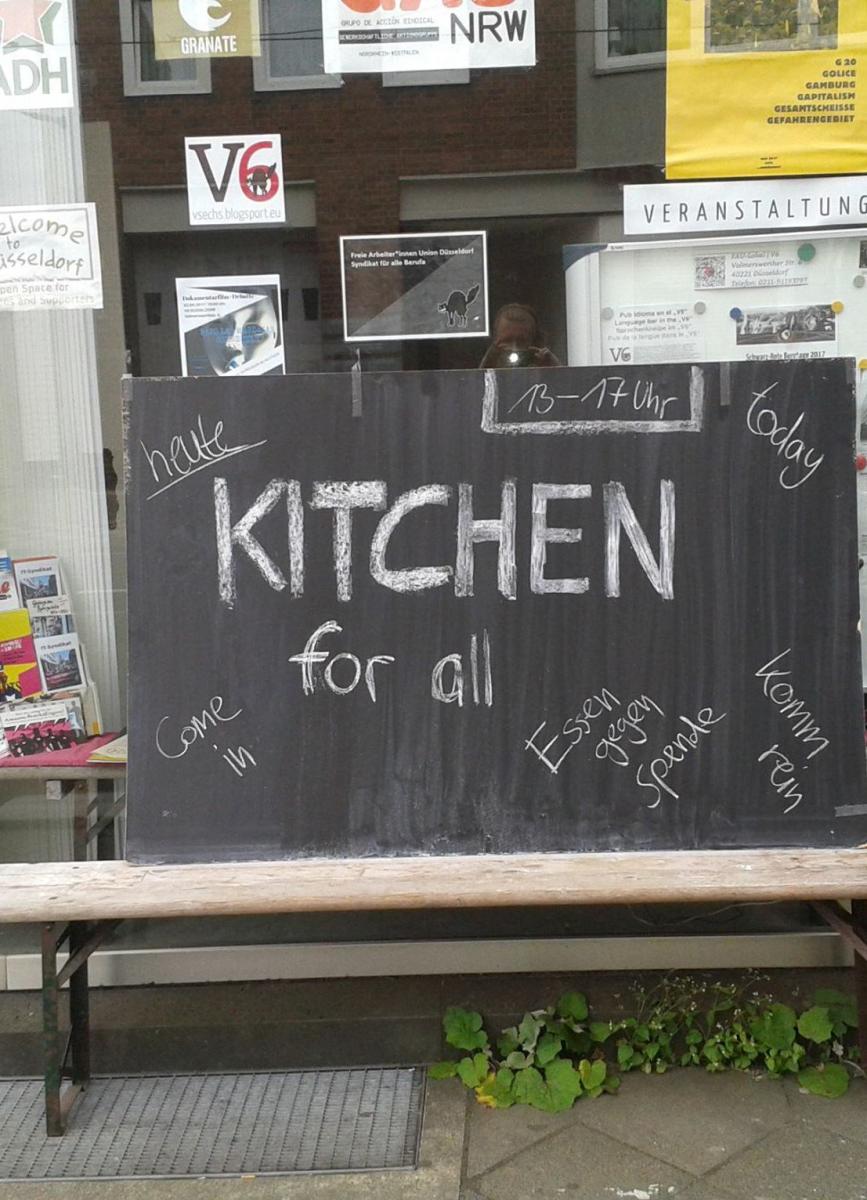 ADH
GRANATE
GRUPO DE ACCIÓN SINDICAL
GEWERKSCHAFTLICHE AKTIONSGRUPPE
NORDRHEIN-WESTFALEN
NRW
G 20
GOLICE
GAMBURG
GAPITALISM
GESAMTSCHEISSE
GEFAHRENGEBIET
V6
vsechs.blogsport.eu
VERANSTALTUNG
elcome
to
üsseldorf
pen Space for
es and Supporters
Freie Arbeiter*innen Union Düsseldorf
Syndikat für alle Berufe
FAU-Lokal | V6
Volmerswerther Str.
40221 Düsseldorf
Pub Idioma en el „V6“
Language bar in the „V6“
Sprachenkneipe im „V6“
Pub de la langue dans le „V6“
V6
Schwarz-Rote Bergtage 2017
Dokumentarfilm-Debatte
heute
13-17 Uhr
today
KITCHEN
for all
Come
in
Essen
gegen
Spende
Komm
rein
FAU-Syndikat